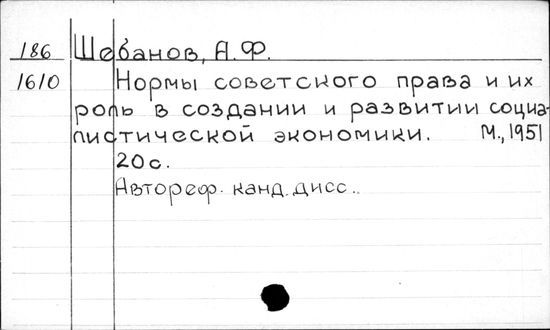 186 Шебанов, А.Ф.
1610 Нормы советского права и их
роль в создании и развитии социа-
листической экономики. М., 1951
20с.
Автореф. канд. дисс..